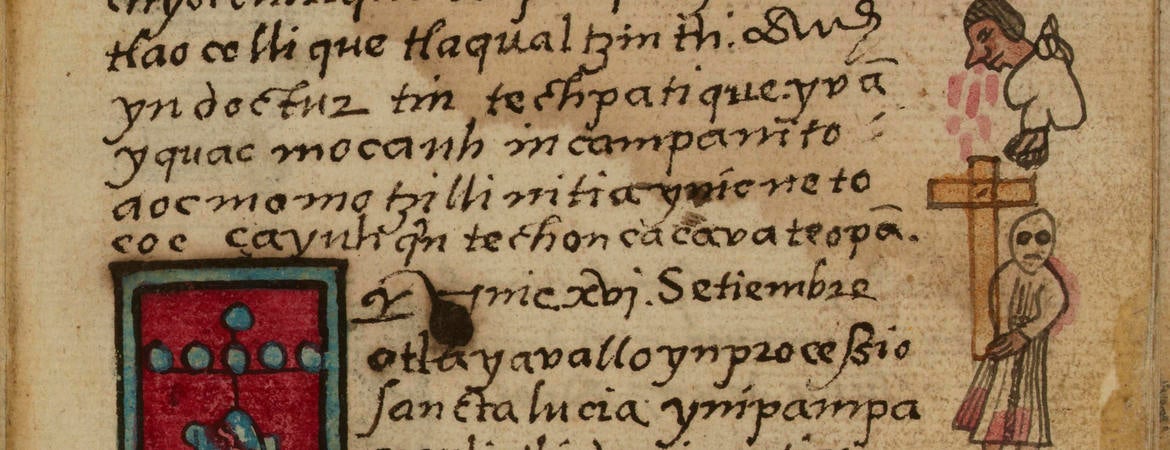 tlaocolli que tlaqualtzintli. auh
yn doctuz tin techpatique. yvā
yquac mocauh in campanito
aocmo motzilli nitia ynic ne to
coc çayuh qn techoncacava teopā.
ynic. xvj. Setiembre
otlayavallo yn processio
sancta lucia ynipampa